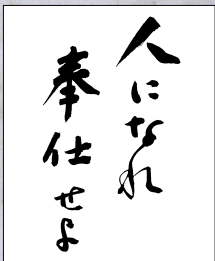 人になれ
奉仕せよ